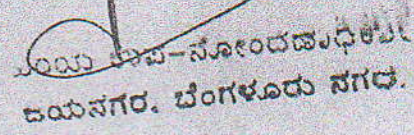 ಉಪ-ನೋಂದಣಾಧಿಕಾರಿ
ಜಯನಗರ, ಬೆಂಗಳೂರು ನಗರ.